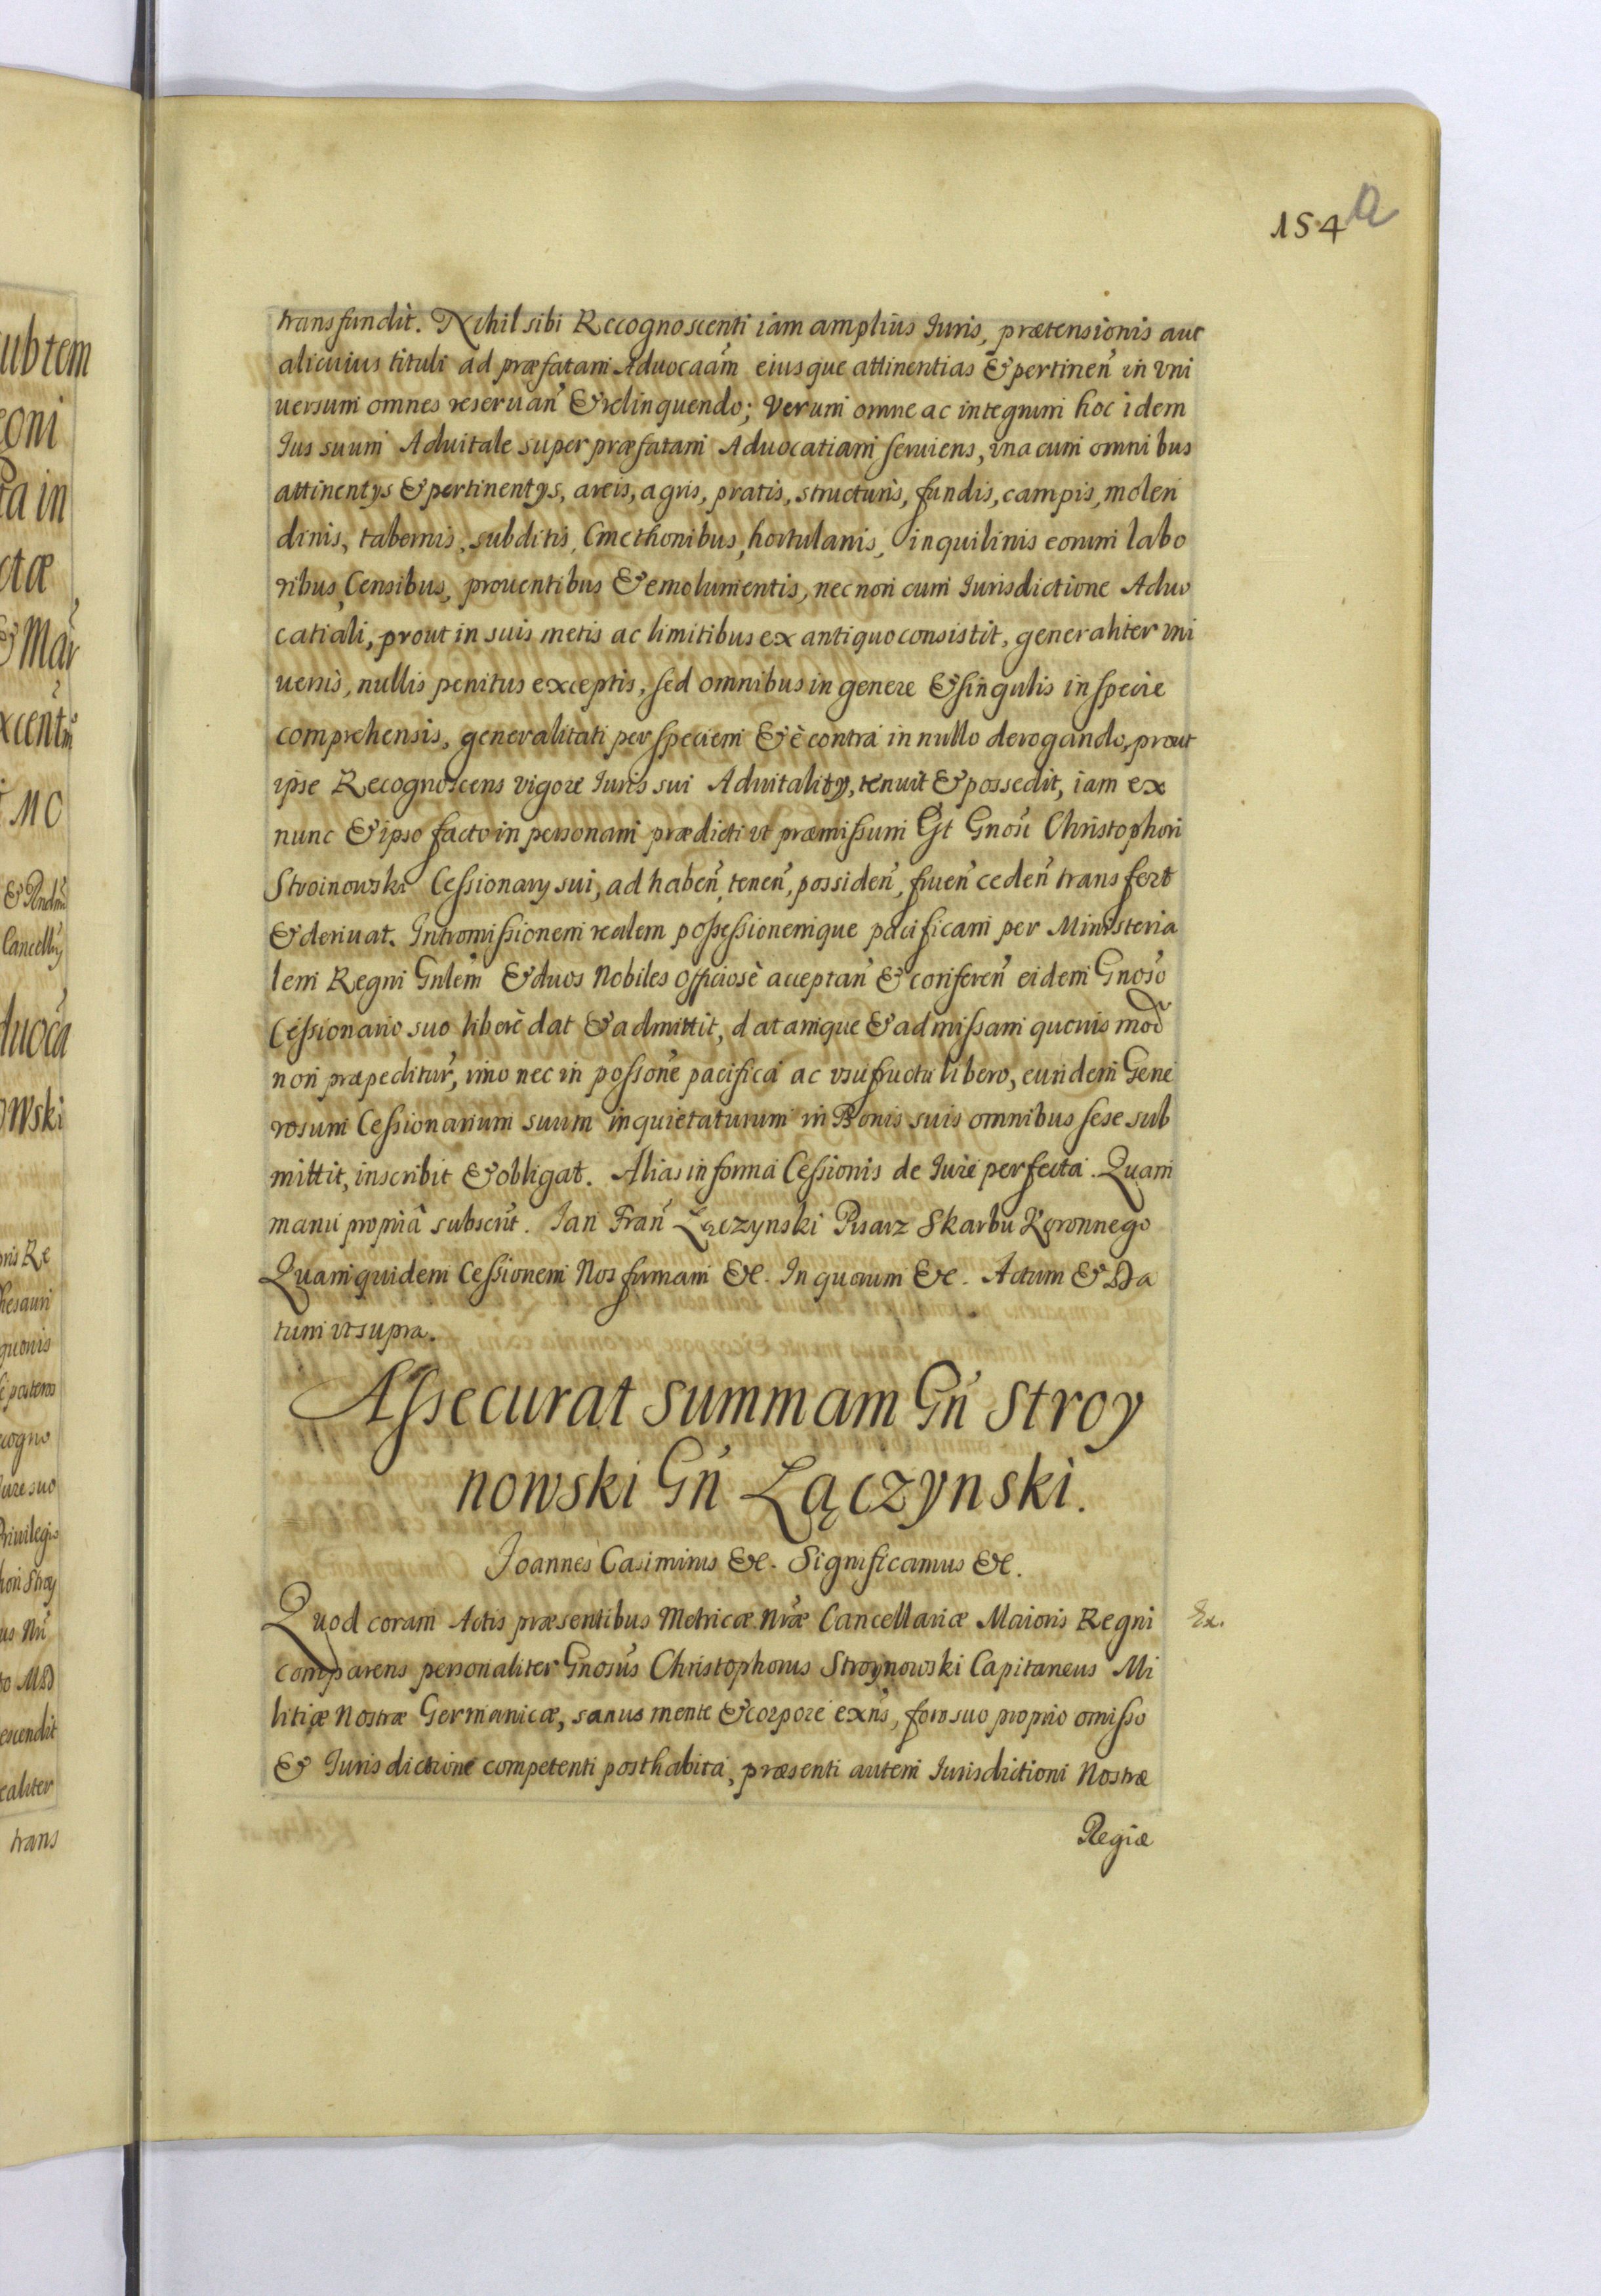 154 a
transfundit. Nihil sibi Recognoscenti iam amplius Iuris, prætensionis aut
alicuius tituli ad præfatam Aduocaãm eiusque attinentias & pertineñ in vni
uersum omnes reseruañ & relinquendo; Verum omne ac integrum hoc idem
Ius suum Aduitale super præfatam Aduocatiam seruiens, vna cum omnibus
attinentys & pertinentys, areis, agris, pratis, structuris, fundis, campis, molen
dinis, tabernis, subditis, Cmethonibus, hortulanis, inquilinis eorum labo
ribus, Censibus, prouentibus & emolumentis, nec non cum Iurisdictione Aduo
catiali, prout in suis metis ac limitibus ex antiquo consistit, generaliter vni
uersis, nullis penitus exceptis, sed omnibus in genere & singulis in specie
comprehensis, generalitati per speciem & è contra in nullo derogando, prout
ipse Recognoscens vigore Iuris sui Aduitalitÿ, tenuit & possedit, iam ex
nunc & ipso facto in personam prædicti vt præmissum Gt Gnosi Christophori
Stroinowski Cessionary sui, ad habeñ, teneñ, possideñ, frueñ cedeñ transfert
& deriuat. Intromissionem realem possessionemque pacificam per Ministeria
lem Regni Gnlem & duos Nobiles officiosè acceptañ & confereñ eidem Gnoso
Cessionario suo liberè dat & admittit, datamque & admissam quouis mod
non præpeditur, imo nec in possone pacifica ac vsufructu libero, eundem Gene
rosum Cessionarium suum inquietaturum in Bonis suis omnibus sese sub
mittit, inscribit & obligat. Alias in forma Cessionis de Iure perfecta. Quam
manu propriâ subscrit. Jan Frañ Łączynski Pisarz Skarbu Koronnego
Quamquidem Cessionem Nos firmam &c. In quorum &c. Actum & Da
tum vt supra.
Assecurat summam Gñ Stroy
nowski Gñ Łączynski.
Joannes Casimirus &c. Significamus &c.
Quod coram Actis præsentibus Metricæ Nræ Cancellariæ Maioris Regni
Ex.
comparens personaliter Gnosus Christophorus Stroynowski Capitaneus Mi
litiæ Nostræ Germanicæ, sanus mente & corpore exñs, foro suo proprio omisso
& Iurisdictione competenti posthabita, præsenti autem Iurisdictioni Nostræ
Regiæ